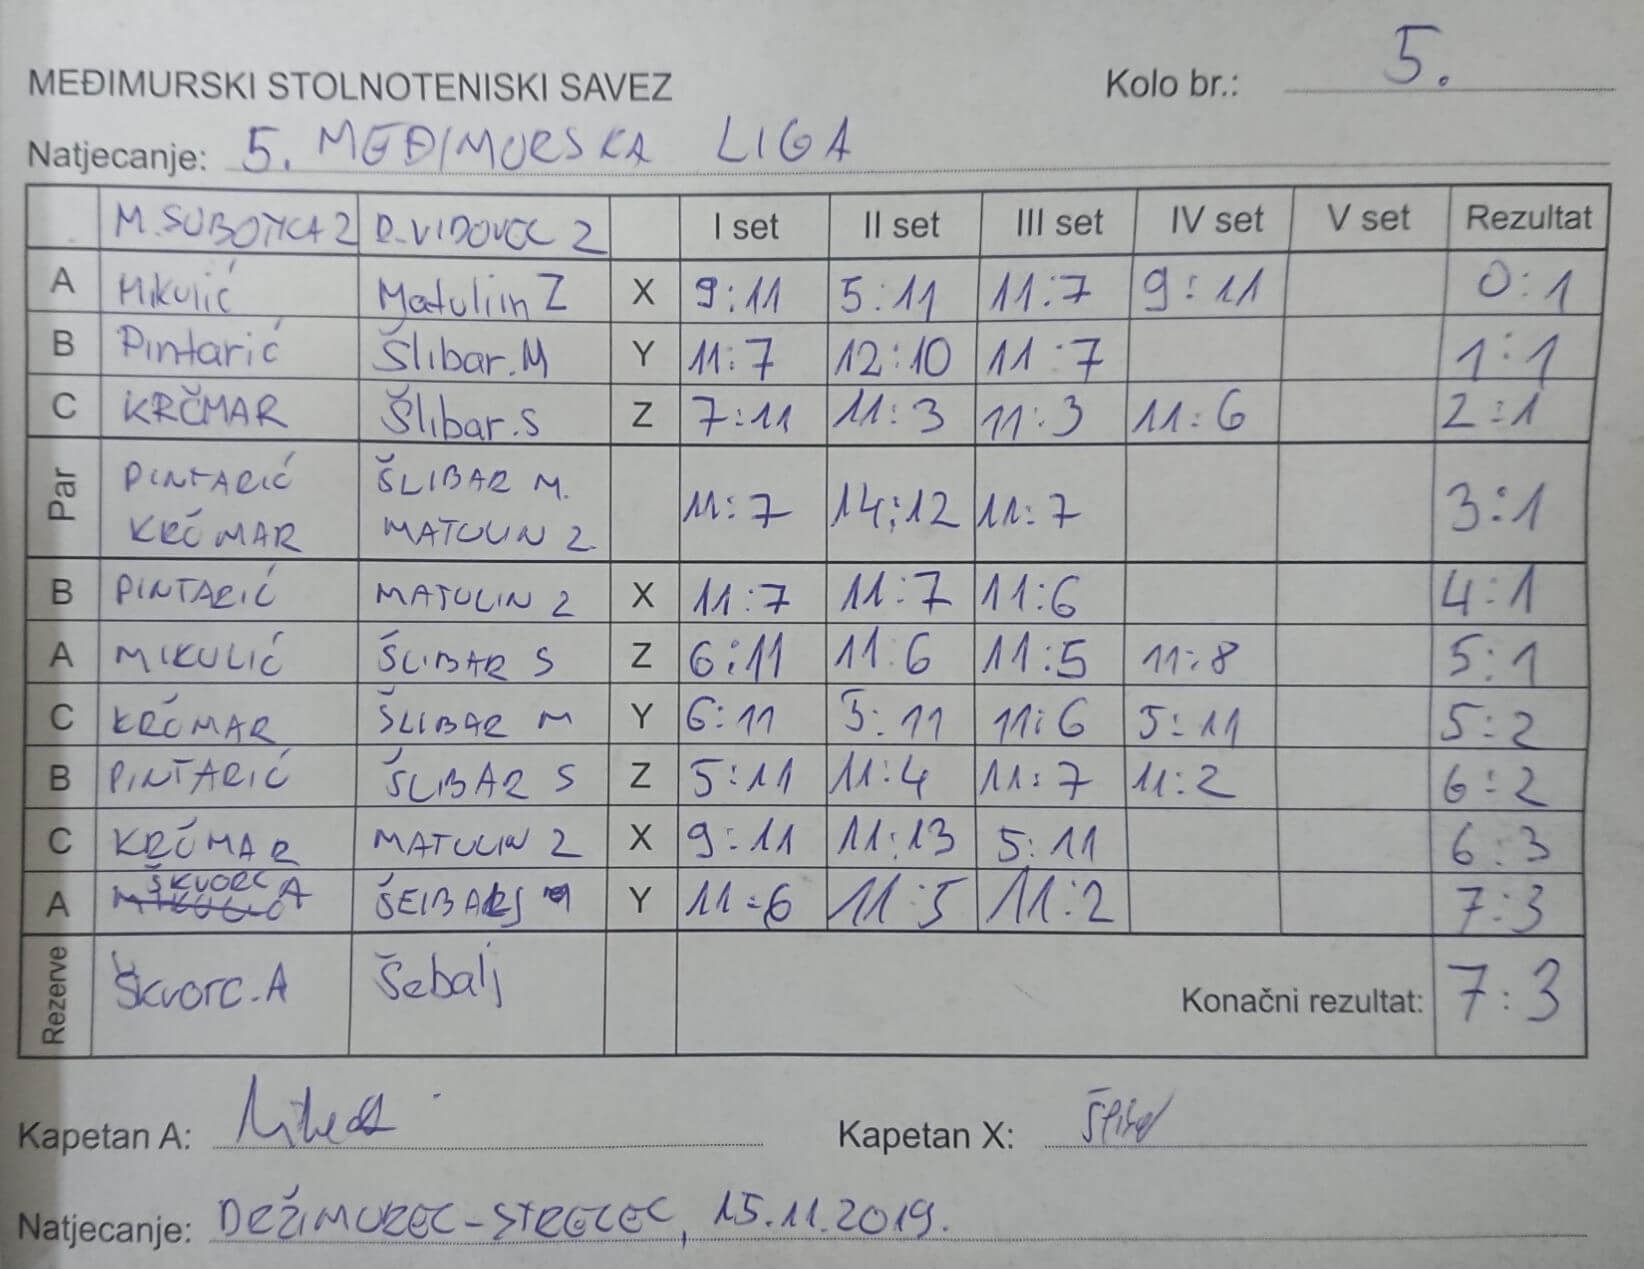 MEĐIMURSKI STOLNOTENISKI SAVEZ Kolo br.: 5.
Natjecanje: 5. MEĐIMURSKA LIGA
M. SUBOTICA 2 D. VIDOVEC 2 I set II set III set IV set V set Rezultat
A Mikulić Matulin Z X 9:11 5:11 11:7 9:11 0:1
B Pintarić Šlibar.M Y 11:7 12:10 11:7 1:1
C KRČMAR Šlibar.S Z 7:11 11:3 11:3 11:6 2:1
Par PINTARIĆ ŠLIBAR M. 11:7 14:12 11:7 3:1
KRČMAR MATULIN Z
B PINTARIĆ MATULIN Z X 11:7 11:7 11:6 4:1
A MIKULIĆ ŠLIBAR S Z 6:11 11:6 11:5 11:8 5:1
C KRČMAR ŠLIBAR M Y 6:11 5:11 11:6 5:11 5:2
B PINTARIĆ ŠLIBAR S Z 5:11 11:4 11:7 11:2 6:2
C KRČMAR MATULIN Z X 9:11 11:13 5:11 6:3
A ŠKVORC A Y 11:6 11:5 11:2 7:3
Rezerve Škvorc.A Šebalj Konačni rezultat: 7:3
Kapetan A: Kapetan X:
Natjecanje: DRŽIMUREC-STRELEC, 15.11.2019.